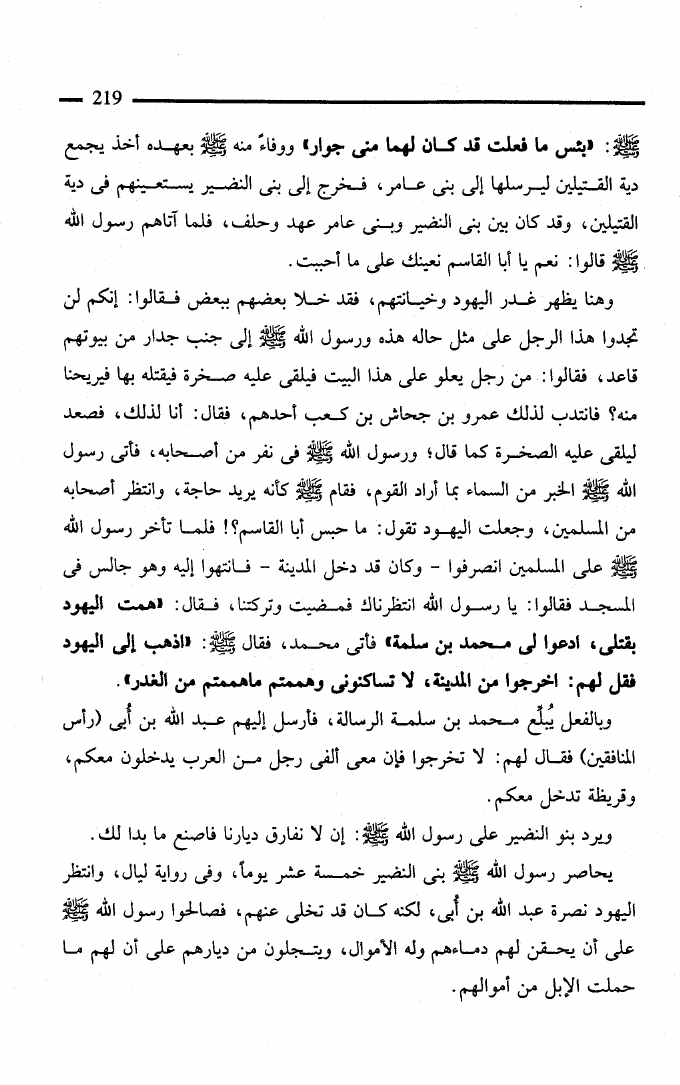 219
ﷺ: «بئس ما فعلت قد كان لهما منى جوار» ووفاءً منه ﷺ بعهده أخذ يجمع
دية القتيلين ليرسلها إلى بنى عامر، فخرج إلى بنى النضير يستعينهم فى دية
القتيلين، وقد كان بين بنى النضير وبنى عامر عهد وحلف، فلما آتاهم رسول الله
ﷺ قالوا: نعم يا أبا القاسم نعينك على ما أحببت.
وهنا يظهر غدر اليهود وخيانتهم، فقد خلا بعضهم ببعض فقالوا: إنكم لن
تجدوا هذا الرجل على مثل حاله هذه ورسول الله ﷺ إلى جنب جدار من بيوتهم
قاعد، فقالوا: من رجل يعلو على هذا البيت فيلقى عليه صخرة فيقتله بها فيريحنا
منه؟ فانتدب لذلك عمرو بن جحاش بن كعب أحدهم، فقال: أنا لذلك، فصعد
ليلقى عليه الصخرة كما قال؛ ورسول الله ﷺ فى نفر من أصحابه، فأتى رسول
الله ﷺ الخبر من السماء بما أراد القوم، فقام ﷺ كأنه يريد حاجة، وانتظر أصحابه
من المسلمين، وجعلت اليهود تقول: ما حبس أبا القاسم؟! فلما تأخر رسول الله
ﷺ على المسلمين انصرفوا - وكان قد دخل المدينة - فانتهوا إليه وهو جالس فى
المسجد فقالوا: يا رسول الله انتظرناك فمضيت وتركتنا، فقال: «همت اليهود
بقتلى، ادعوا لى محمد بن سلمة» فأتى محمد، فقال ﷺ: «اذهب إلى اليهود
فقل لهم: اخرجوا من المدينة، لا تساكنونى وهممتم ماهممتم من الغدر».
وبالفعل يُبلِّغ محمد بن سلمة الرسالة، فأرسل إليهم عبد الله بن أُبى (رأس
المنافقين) فقال لهم: لا تخرجوا فإن معى ألفى رجل من العرب يدخلون معكم،
وقريظة تدخل معكم.
ويرد بنو النضير على رسول الله ﷺ: إن لا نفارق ديارنا فاصنع ما بدا لك.
يحاصر رسول الله ﷺ بنى النضير خمسة عشر يوماً، وفى رواية ليال، وانتظر
اليهود نصرة عبد الله بن أُبى، لكنه كان قد تخلى عنهم، فصالحوا رسول الله ﷺ
على أن يحقن لهم دماءهم وله الأموال، ويتجلون من ديارهم على أن لهم ما
حملت الإبل من أموالهم.